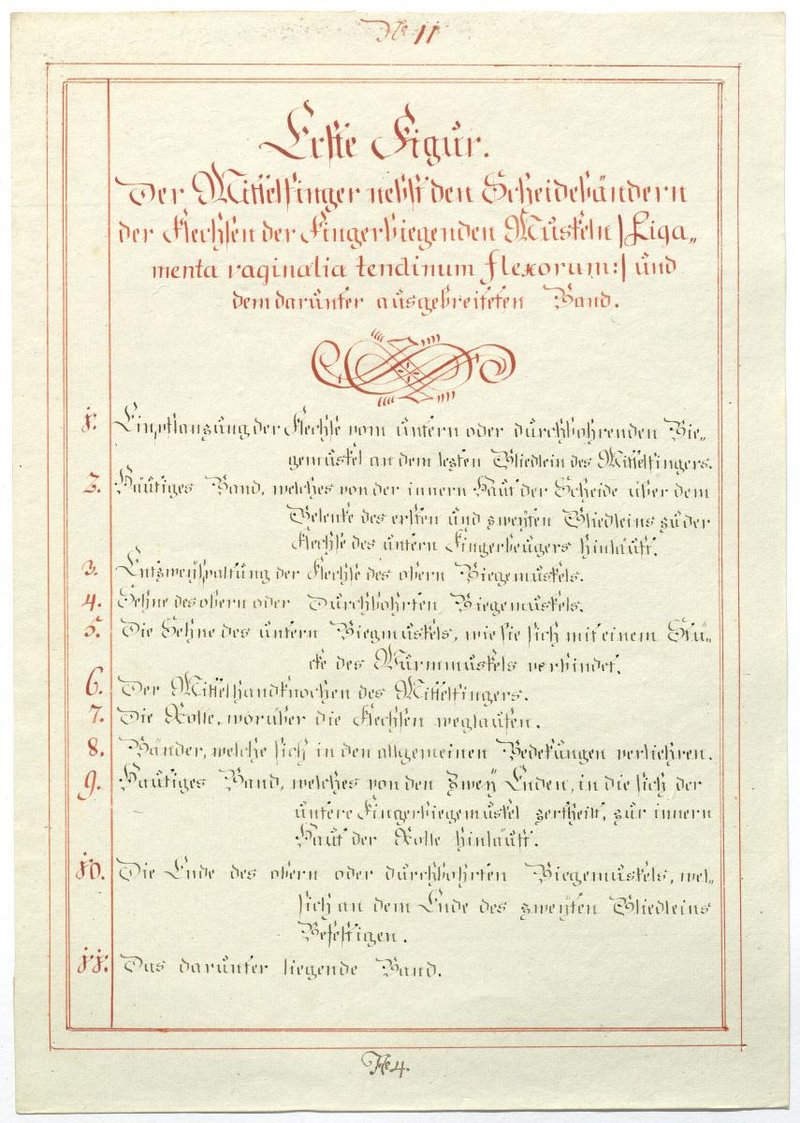 No 11
Erste Figur.
Der Mittelfinger nebst den Scheidebändern
der Flechsen der Fingerbiegenden Muskeln |: Liga„
menta vaginalia tendinum flexorum :| und
dem darunter ausgebreiteten Band.
1. Einpflanzung der Flechse vom untern oder durchbohrenden Bie„
gemuskel an dem lezten Gliedlein des Mittelfingers.
2. Häutiges Band, welches von der innern Haut der Scheide über dem
Gelenke des ersten und zweyten Gliedleins zu der
Flechse des untern Fingerbeugers hinläuft.
3. Entzweyspaltung der Flechse des obern Biegemuskels.
4. Sehne des obern oder Durchbohrten Biegemuskels.
5. Die Sehne des untern Biegmuskels, wie sie sich mit einem Stü„
cke des Wurmmuskels verbindet.
6. Der Mittelhandknochen des Mittelfingers.
7. Die Rolle, worüber die Flechsen weglaufen.
8. Bänder, welche sich in den allgemeinen Bedekungen verliehren.
9. Hautiges Band, welches von den zwey Enden, in die sich der
untere Fingerbiegemuskel zertheilt, zur innern
Haut der Rolle hinläuft.
10. Die Ende des obern oder durchbohrten Biegemuskels, wel„
sich an dem Ende des zweyten Gliedleins
Befestigen.
11. Das darunter liegende Band.
No 4.